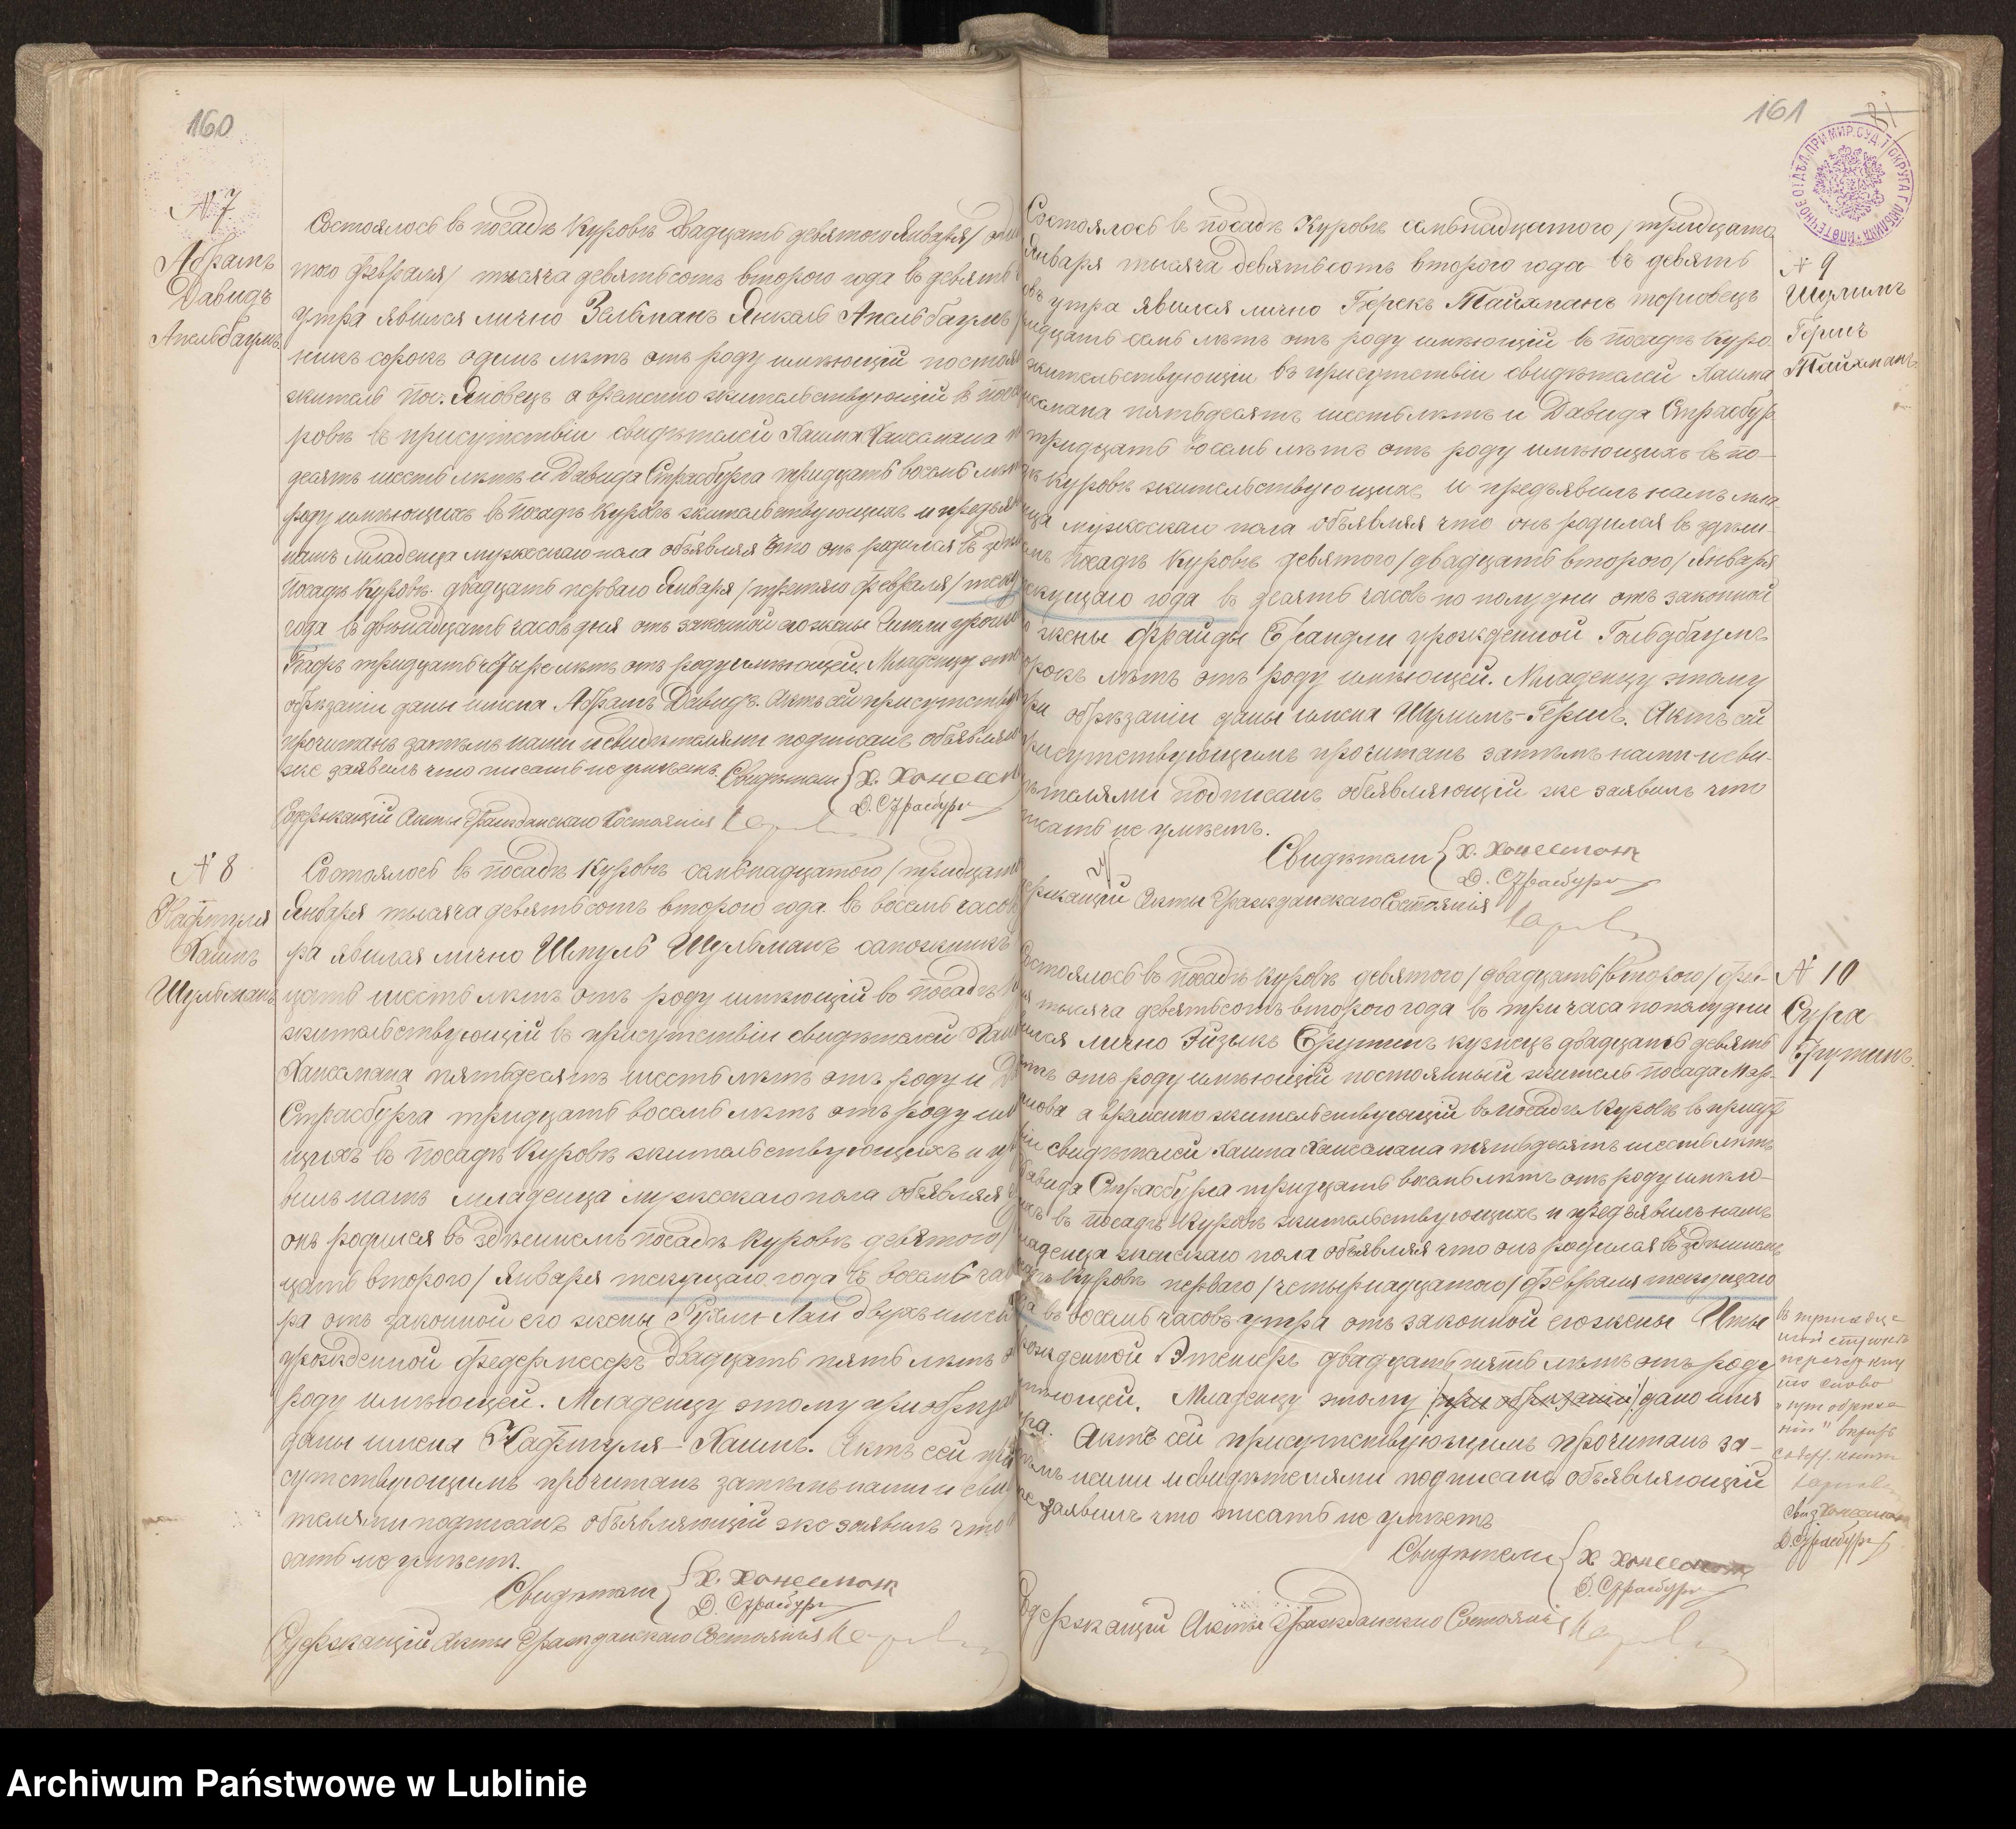 160
N 7
Абрамъ
Давидъ
Апельбаумъ
Состоялось въ посадѣ Куровѣ Двадцать девятого Января/
того Февраля/ тысяча девятьсотъ второго года въ девять
утра явился лично Зельманъ Янкель Апельбаумъ
никъ сорокъ одинъ лѣтъ отъ роду имѣющій постоян
житель пос. Яновецъ а временно жительствующій въ пос
ровѣ въ присутствіи свидѣтелей Хаима Ханесмана
десятъ шесть лѣтъ и Давида Страсбурга тридцать восемь лѣт
роду имѣющихъ въ посадѣ Куровѣ жительствующихъ и предъяв
намъ младенца мужескаго пола объявляя что онъ родился въ здѣш
посадѣ Куровѣ двадцать перваго Января /третяго Февраля/ теку
года въ двѣнадцать часовъ дня отъ законной его жены
тридцать четыре лѣтъ отъ роду имѣющей. Младенцу это
обрѣзаніи даны имена Абрамъ Давидъ. Актъ сей присутству
прочитанъ затѣмъ нами и свидѣтелями подписанъ объявляю
же заявилъ что писать не умѣетъ. Свидѣтели { Х. Ханесман
Д. Страсбург
Содержащій Акты Гражданскаго Состоянія
N 8
Нафтуля
Хаимъ
Шульманъ
Состоялось въ посадѣ Куровѣ семьнадцатого /тридцат
Января тысяча девятьсотъ второго года въ восемь часов
ра явился лично Шмуль Шульманъ сапожникъ
цать шесть лѣтъ отъ роду имѣющій въ посадѣ
жительствующій въ присутствіи свидѣтелей Хаим
Ханесмана пятьдесятъ шесть лѣтъ отъ роду и Д
Страсбурга тридцать восемь лѣтъ отъ роду имѣ
щихъ въ посадѣ Куровѣ жительствующихъ и пр
вилъ намъ младенца мужескаго пола объявляя
онъ родился въ здѣшнемъ посадѣ Куровѣ девятого/
цать второго/ Января текущаго года въ восемь час
ра отъ законной его жены Рухли Лаи двухъ имен
урожденной Федермесеръ двадцать пять лѣтъ
роду имѣющей. Младенцу этому при обрѣза
даны имена Нафтуля-Хаимъ. Актъ сей при
сутствующимъ прочитанъ затѣмъ нами и сви
телями подписанъ объявляющій же заявилъ что
сать не умѣетъ.
Свидѣтели { Х. Ханесман
Д. Страсбург
Содержащій Акты Гражданскаго Состоянія
161
ИПОТЕЧНОЕ ОТДѢЛ. ПРИ МИР. СУД. ОКРУГА Г. ЛЮБЛИНА
Состоялось въ посадѣ Куровѣ семьнадцатого /тридцато
Января тысяча девятьсотъ второго года въ девять
овъ утра явился лично Герекъ Тайхманъ торговецъ
ридцать семь лѣтъ отъ роду имѣющій въ посадѣ Куро
жительствующій въ присутствіи свидѣтелей Хаима
несмана пятьдесятъ шесть лѣтъ и Давида Страсбур
тридцать восемь лѣтъ отъ роду имѣющихъ въ по-
дѣ Куровѣ жительствующихъ и предъявилъ намъ мла
нца мужескаго пола объявляя что онъ родился въ здѣш-
емъ посадѣ Куровѣ девятого /двадцать второго/ Января
екущаго года въ десять часовъ по полудни отъ законной
жены Фрайды Брандли урожденной Гольдбаумъ
орокъ лѣтъ отъ роду имѣющей. Младенцу этому
при обрѣзаніи даны имена Шулимъ-Гершъ. Актъ сей
присутствующимъ прочитанъ затѣмъ нами и сви-
ѣтелями подписанъ объявляющій же заявилъ что
исать не умѣетъ.
Свидѣтели { Х. Ханесман
Д. Страсбург
держащій Акты Гражданскаго Состоянія
N 9
Шулимъ
Гершъ
Тайхманъ
Состоялось въ посадѣ Куровѣ девятого /двадцать второго/ Фев-
тысяча девятьсотъ второго года въ три часа по полудни
вился лично Эйзыкъ Грутинъ кузнецъ двадцать девять
лѣтъ отъ роду имѣющій постоянный житель посада Мар-
кушова а временно жительствующій въ посадѣ Куровѣ въ присут
іи свидѣтелей Хаима Ханесмана пятьдесятъ шесть лѣтъ
Давида Страсбурга тридцать восемь лѣтъ отъ роду имѣю-
ихъ въ посадѣ Куровѣ жительствующихъ и предъявилъ намъ
младенца женскаго пола объявляя что онъ родился въ здѣшнемъ
садѣ Куровѣ перваго /четырнадцатого/ Февраля текущаго
да въ восемь часовъ утра отъ законной его жены Иты
рожденной Этингеръ двадцать пять лѣтъ отъ роду
имѣющей. Младенцу этому /при обрѣзаніи/ дано имя
ура. Актъ сей присутствующимъ прочитанъ за-
тѣмъ нами и свидѣтелями подписанъ объявляющій
же заявилъ что писать не умѣетъ
Свидѣтели { Х. Ханесман
Д. Страсбург
Содержащій Акты Гражданскаго Состоянія
N 10
Сура
Грутинъ
въ тринадца-
той строкѣ
перечеркну
то слово
"при обрѣза-
ніи"
Д. Страсбург
Archiwum Państwowe w Lublinie